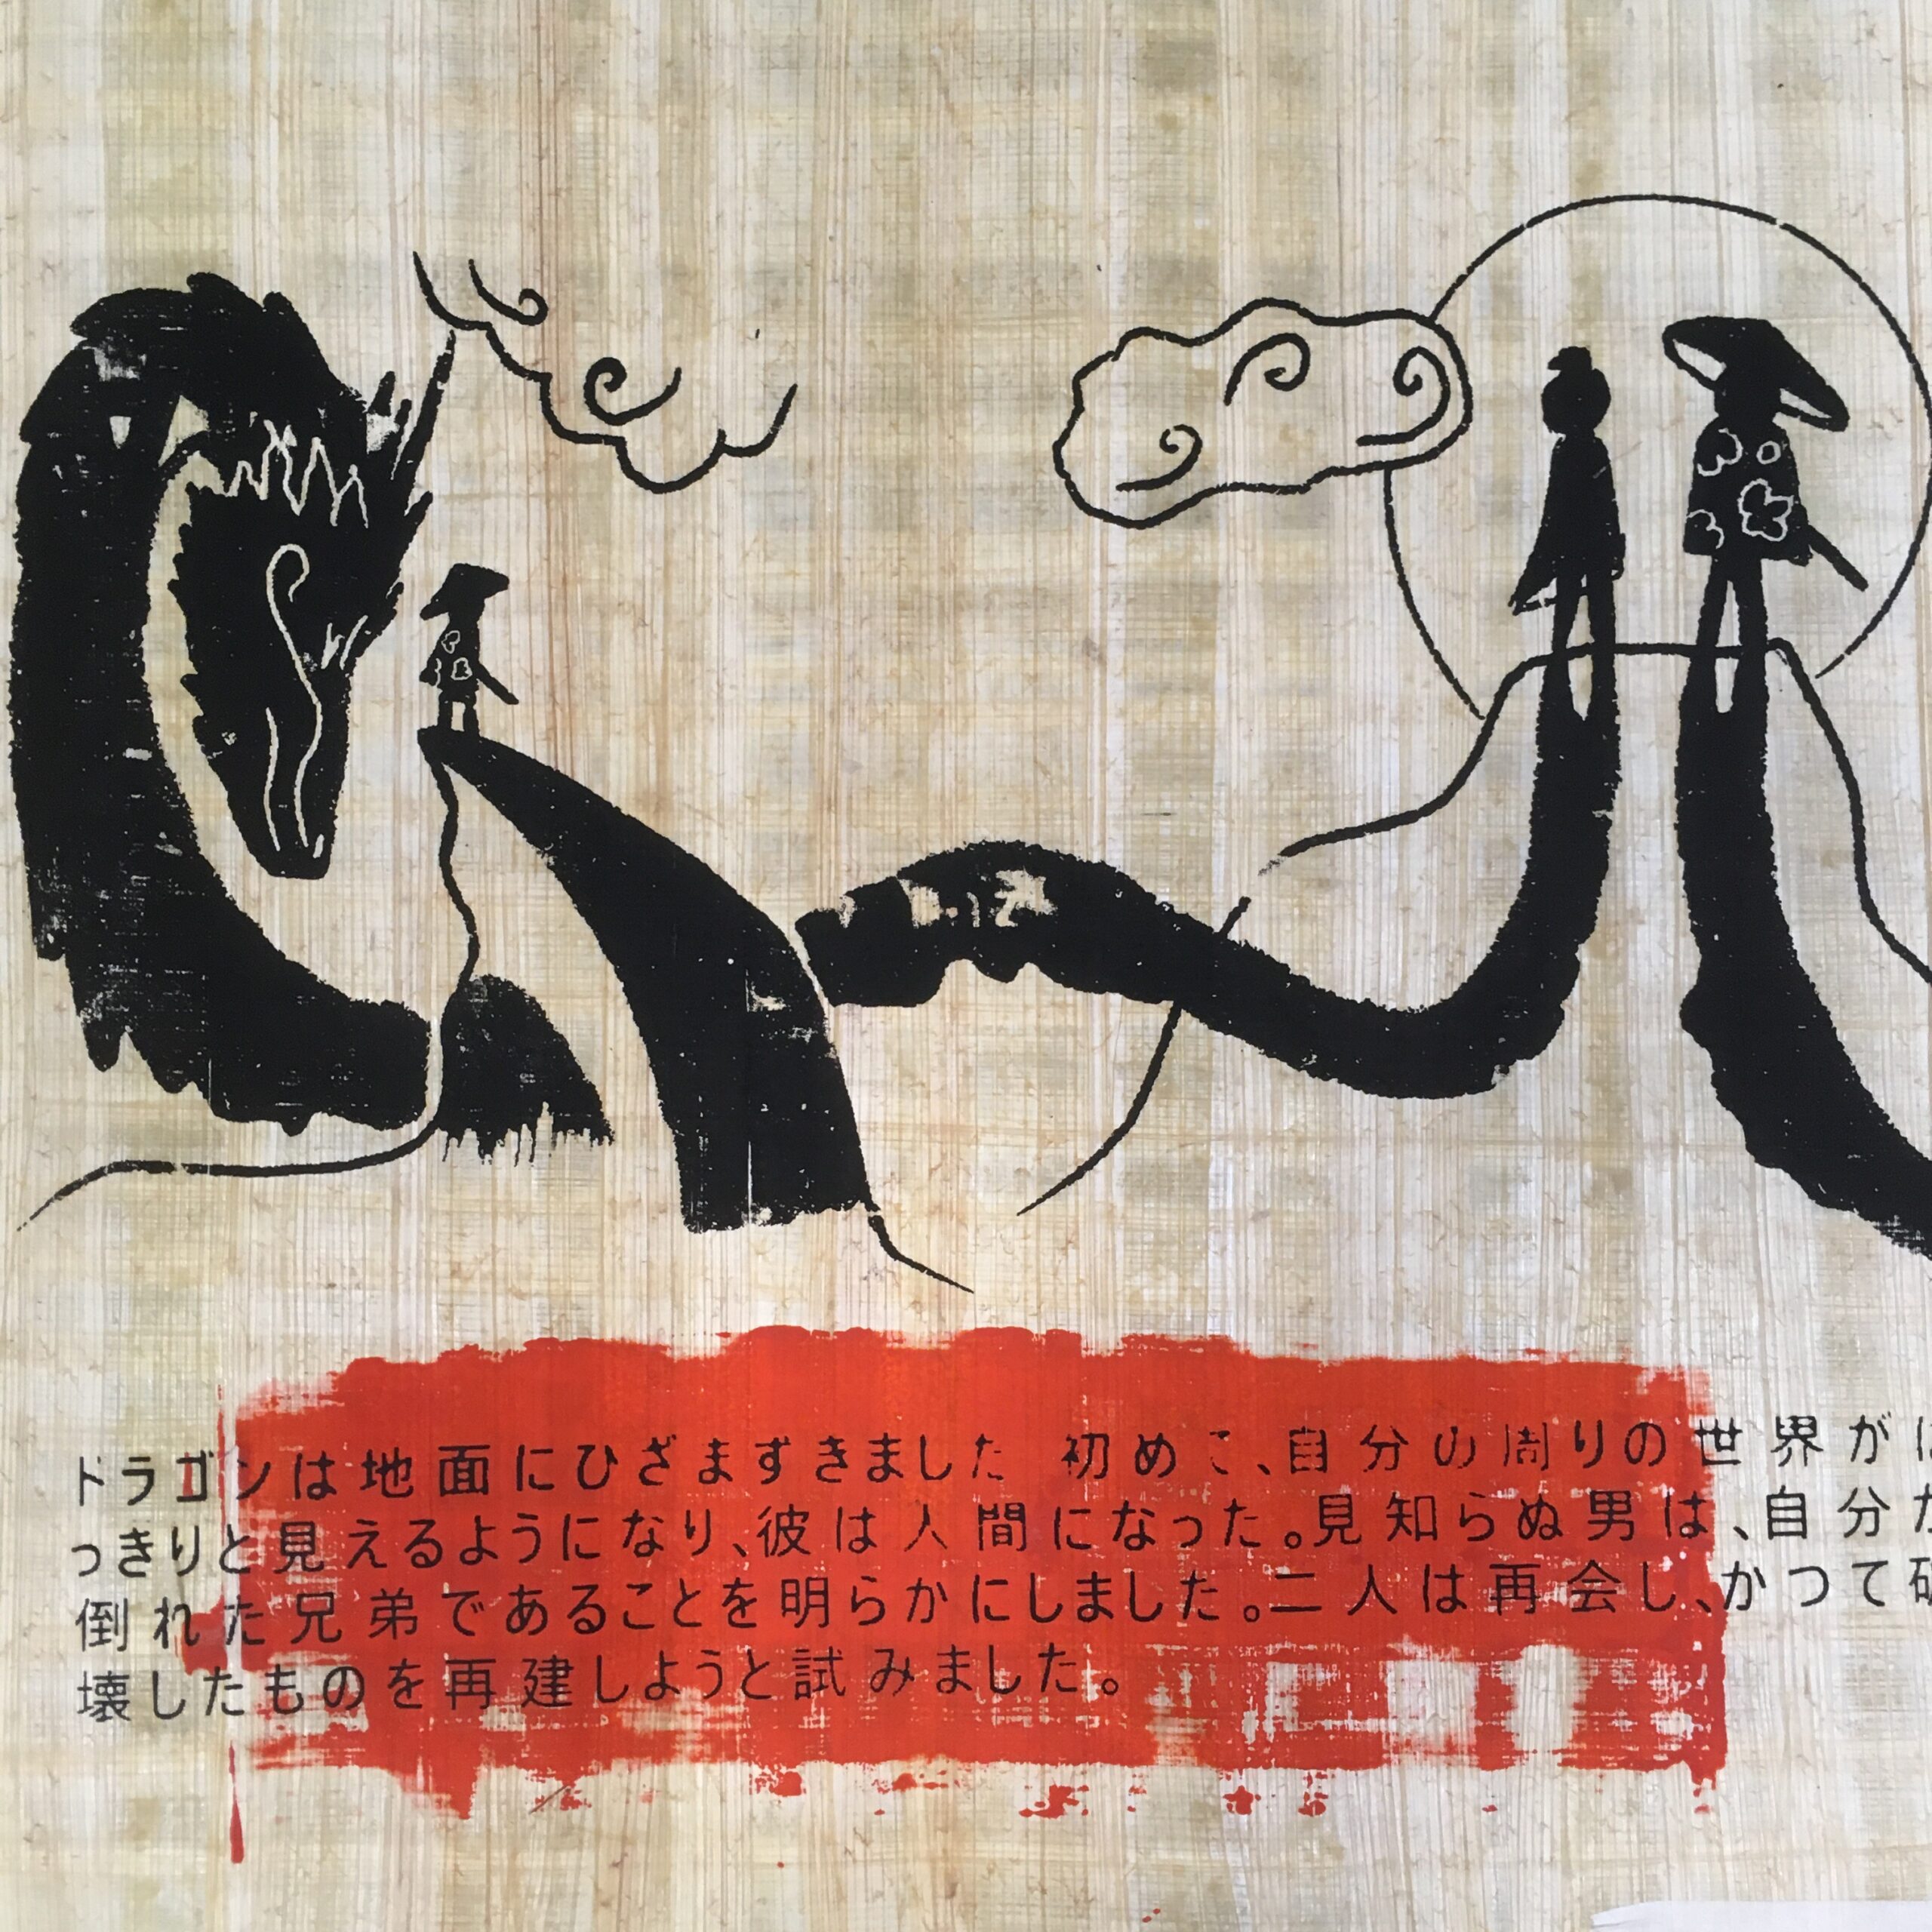 ドラゴンは地面にひざまずきました 初めて、自分の周りの世界がは
っきりと見えるようになり、彼は人間になった。見知らぬ男は、自分が
倒れた兄弟であることを明らかにしました。二人は再会し、かつて破
壊したものを再建しようと試みました。